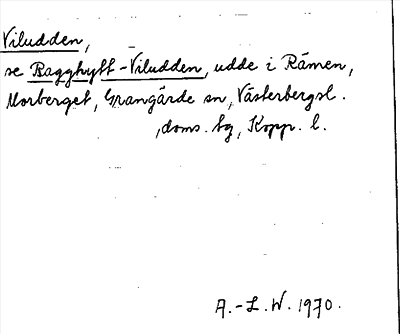 Viludden,
se Bagghytt-Viludden, udde i Rämen,
Norberget, Grangärde sn, Västerbergsl.
,doms.bg, Kopp. l.
A.-L.W. 1970.